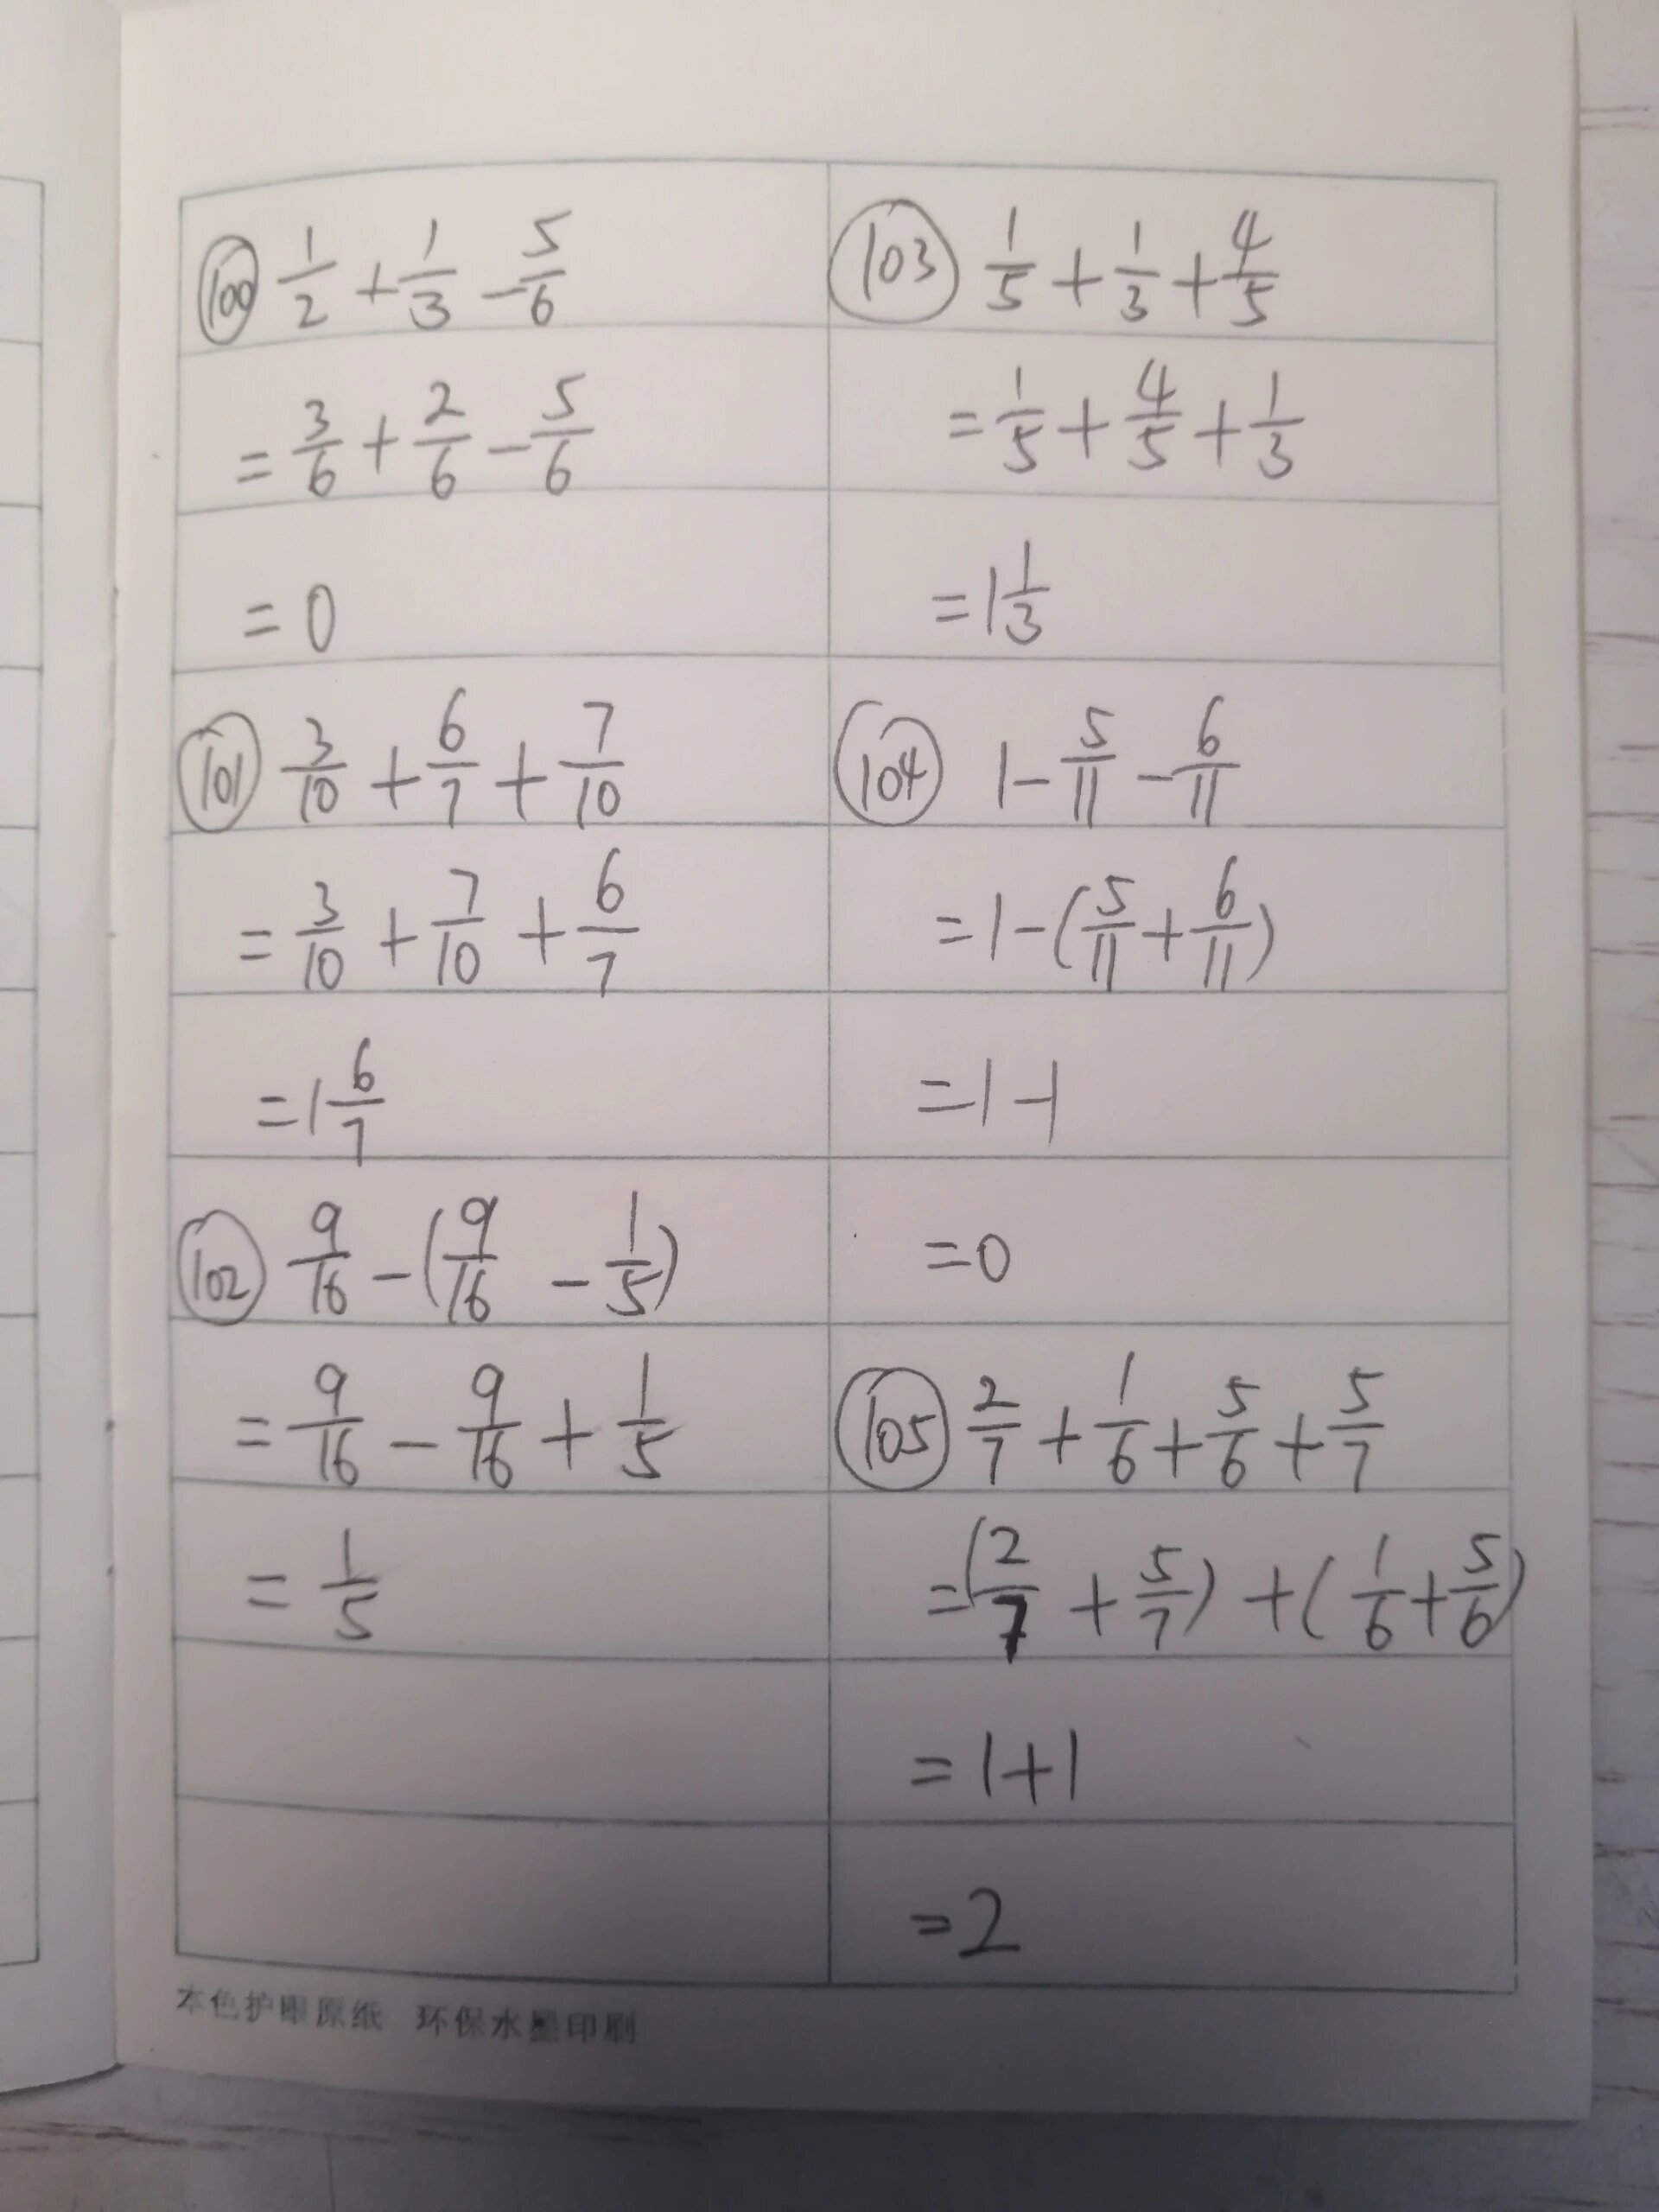 (100) 1/2 + 1/3 - 5/6
= 3/6 + 2/6 - 5/6
= 0
(101) 3/10 + 6/7 + 7/10
= 3/10 + 7/10 + 6/7
= 1 6/7
(102) 9/16 - (9/16 - 1/5)
= 9/16 - 9/16 + 1/5
= 1/5
(103) 1/5 + 1/3 + 4/5
= 1/5 + 4/5 + 1/3
= 1 1/3
(104) 1 - 5/11 - 6/11
= 1 - (5/11 + 6/11)
= 1 - 1
= 0
(105) 2/7 + 1/6 + 5/6 + 5/7
= (2/7 + 5/7) + (1/6 + 5/6)
= 1 + 1
= 2
本色护眼原纸 环保水墨印刷